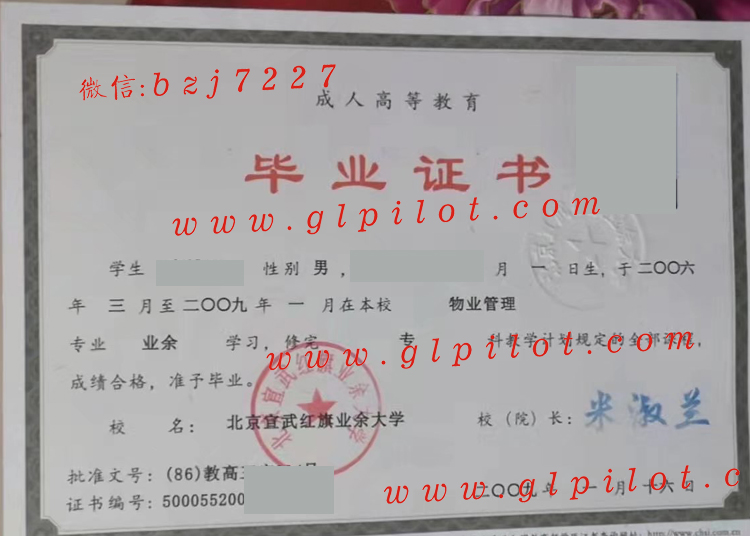 微信:bzj7227
成人高等教育
毕业证书
www.glpilot.com
学生 性别 男 , 月 一 日生, 于二〇〇六
年 三 月至二〇〇九 年 一 月在本校 物业管理
专业 业余 学习, 修完 专 科教学计划规定的全部课程,
www.glpilot.com
成绩合格, 准予毕业。
校 名: 北京宣武红旗业余大学 校(院)长: 米淑兰
批准文号: (86)教高三
证书编号: 500055200 二〇〇九 年 一 月 十六 日
www.glpilot.c
北京宣武红旗业余大学
http://www.chsi.com.cn